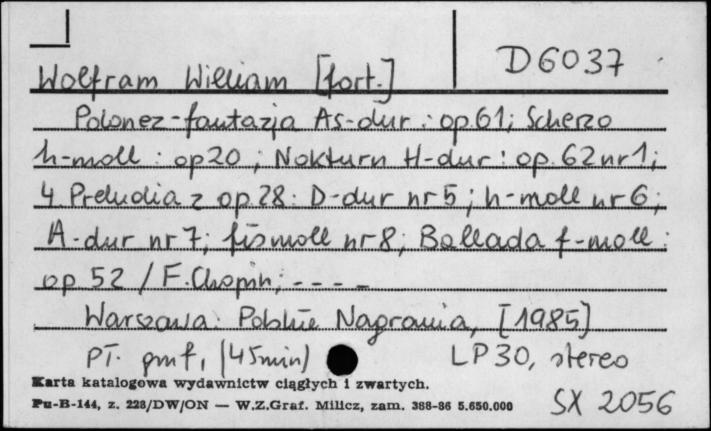 D6037
Wolfram William [fort.]
Polonez-fantazja As-dur : op.61; Scherzo
h-moll : op20 ; Nokturn H-dur : op. 62 nr 1;
4 Preludia z op.28: D-dur nr 5 ; h-moll nr 6;
A-dur nr 7; fis moll nr 8; Ballada f-moll :
op 52 / F. Chopin; - - - -
Warszawa: Polskie Nagrania, [1985]
Pł. gmf, (45min) LP30, stereo
Karta katalogowa wydawnictw ciągłych i zwartych.
Pu-B-144, z. 228/DW/ON — W.Z.Graf. Milicz, zam. 388-86 5.650.000
SX 2056